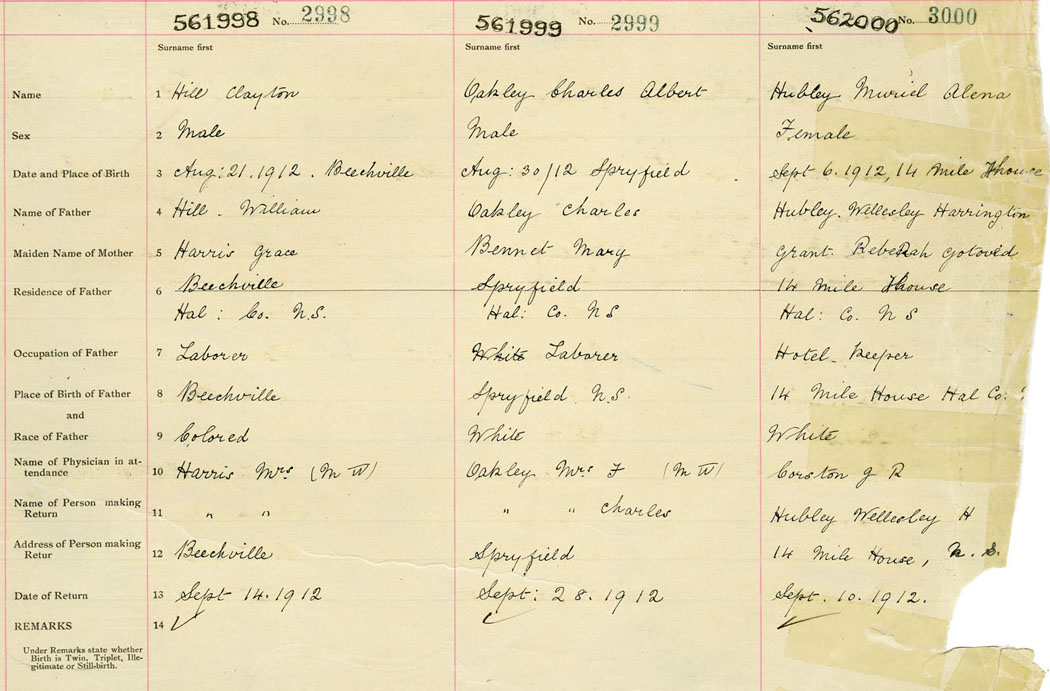 561998 No. 2998 561999 No. 2999 562000 No. 3000
Surname first Surname first Surname first
Name 1 Hill Clayton Oakley Charles Albert Hubley Muriel Alena
Sex 2 Male Male Female
Date and Place of Birth 3 Aug: 21. 1912. Beechville Aug: 30/12 Spryfield Sept 6. 1912, 14 Mile House
Name of Father 4 Hill. William Oakley Charles Hubley. Wellesley Harrington
Maiden Name of Mother 5 Harris Grace Bennet Mary Grant. Rebekah
Residence of Father 6 Beechville Spryfield 14 Mile House
Hal: Co. N.S. Hal: Co. N S Hal: Co. N S
Occupation of Father 7 Laborer White Laborer Hotel-Keeper
Place of Birth of Father 8 Beechville Spryfield N.S. 14 Mile House Hal Co.
and
Race of Father 9 Colored White White
Name of Physician in at-
tendance 10 Harris Mrs (M W) Oakley Mrs F (M W) Corston J R
Name of Person making
Return 11 " " " " Charles Hubley Wellesley H
Address of Person making
Retur 12 Beechville Spryfield 14 Mile House, N. S.
Date of Return 13 Sept 14. 1912 Sept: 28. 1912 Sept. 10. 1912.
REMARKS 14
Under Remarks state whether
Birth is Twin, Triplet, Ille-
gitimate or Still-birth.